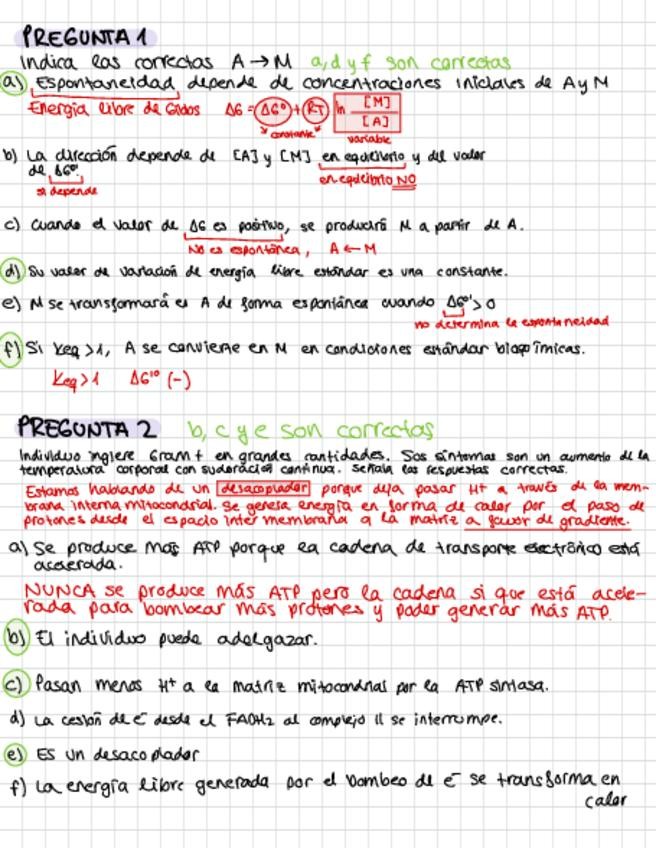 PREGUNTA 1
Indica las correctas A → M a, d y f son correctas
a) Espontaneidad depende de concentraciones iniciales de A y M
Energía libre de Gibbs ΔG = ΔG° + RT ln [M] / [A]
constante variable
b) La dirección depende de [A] y [M] en equilibrio y del valor
de ΔG°'
sí depende en equilibrio NO
c) Cuando el valor de ΔG es positivo, se producirá M a partir de A.
No es espontánea, A ← M
d) Su valor de variación de energía libre estándar es una constante.
e) M se transformará es A de forma espontánea cuando ΔG°' > 0
no determina la espontaneidad
f) Si Keq >1, A se convierte en M en condiciones estándar bioquímicas.
Keq >1 ΔG'° (-)
PREGUNTA 2 b, c y e son correctas
Individuo ingiere Gram + en grandes cantidades. Sos síntomas son un aumento de la
temperatura corporal con sudoración continua. Señala las respuestas correctas.
Estamos hablando de un desacoplador porque deja pasar H+ a través de la mem-
brana interna mitocondrial. Se genera energía en forma de calor por el paso de
protones desde el espacio intermembrana a la matriz a favor de gradiente.
a) Se produce más ATP porque la cadena de transporte electrónico está
acelerada.
NUNCA se produce más ATP pero la cadena si que está acele-
rada para bombear más protones y poder generar más ATP.
b) El individuo puede adelgazar.
c) Pasan menos H+ a la matriz mitocondrial por la ATP sintasa.
d) La cesión de e⁻ desde el FADH2 al complejo II se interrumpe.
e) ES un desacoplador
f) La energía libre generada por el bombeo de e⁻ se transforma en
calor